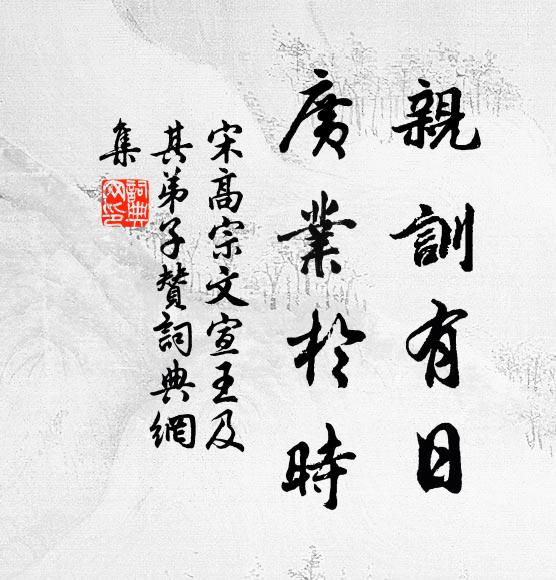 親訓有日
廣業於時
宋高宗文宣王及
其弟子贊詞典網
集
詞典
网印